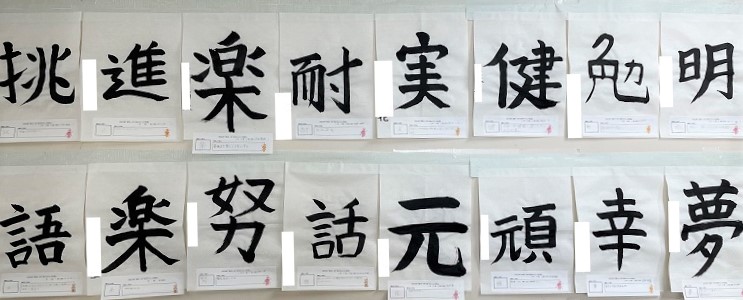 挑 進 楽 耐 実 健 勉 明
語 楽 努 話 元 頑 幸 夢